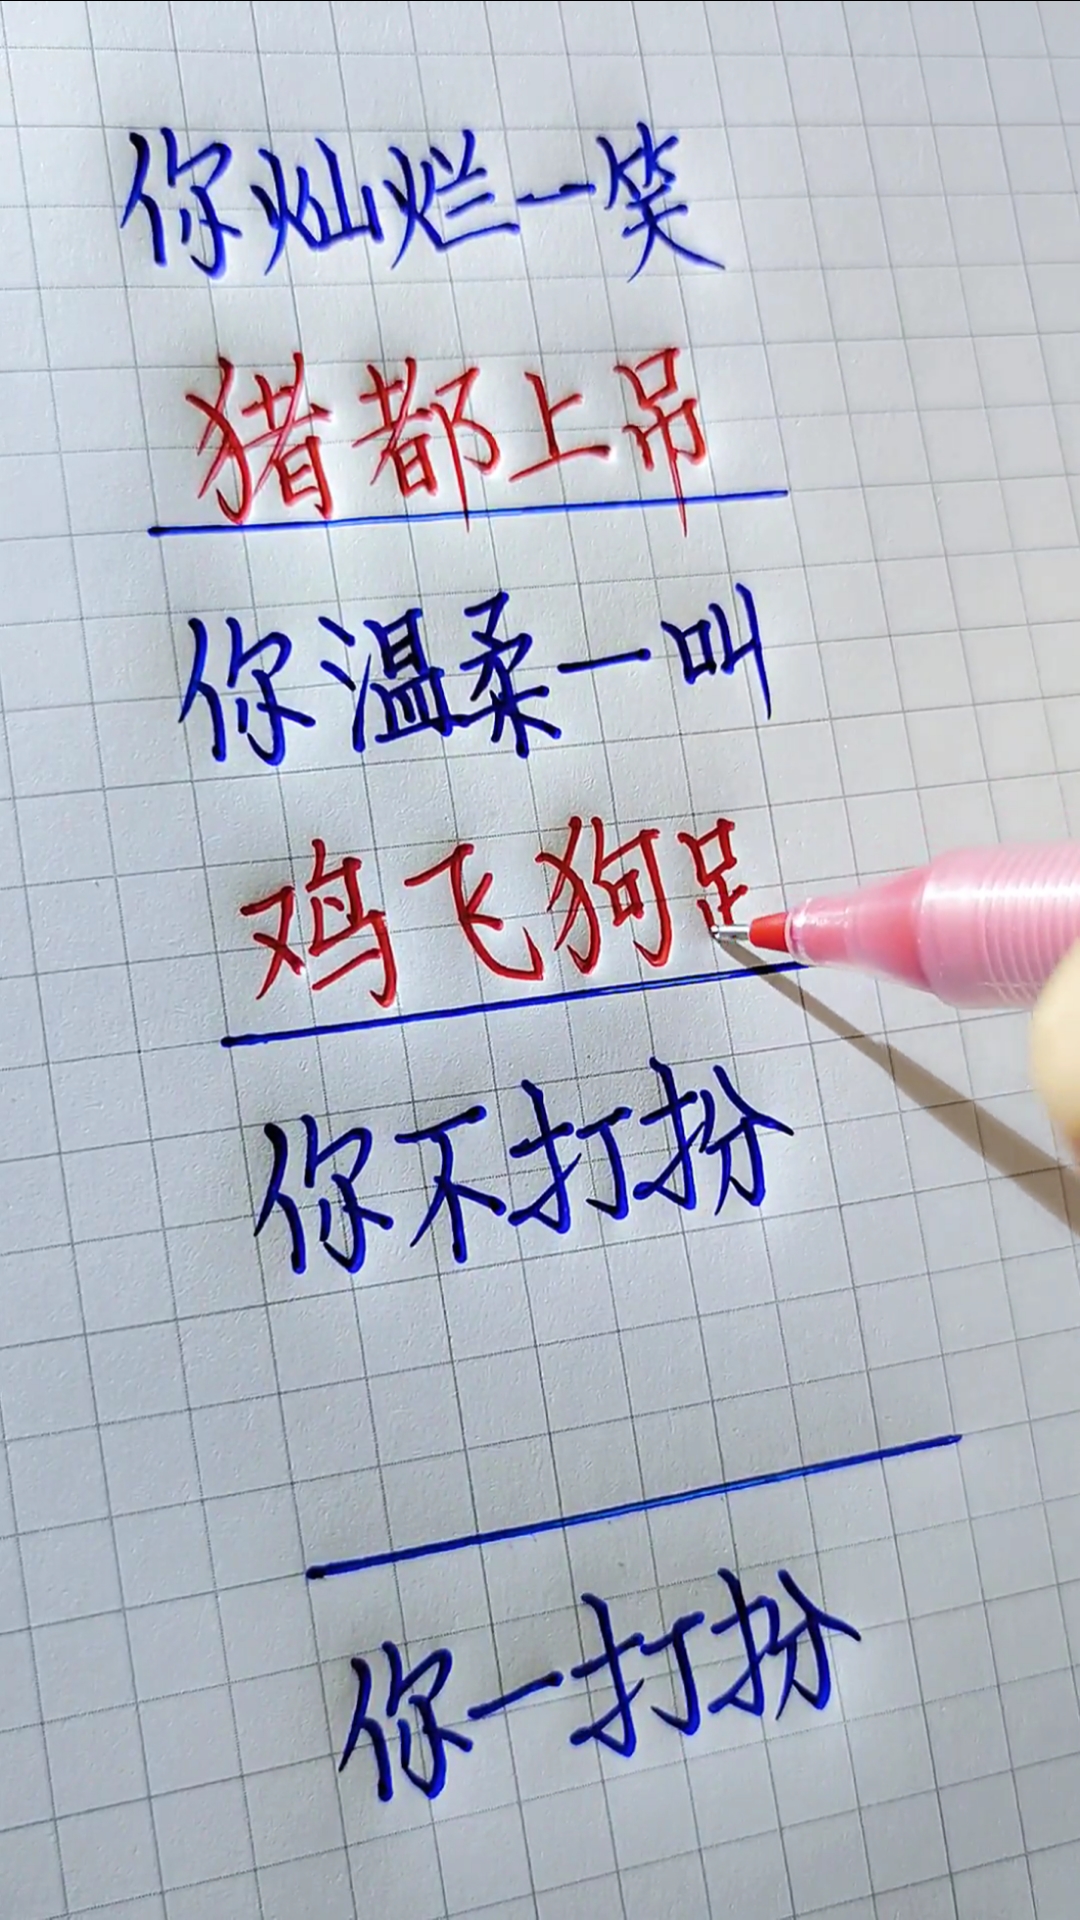 你灿烂一笑
猪都上吊
你温柔一叫
鸡飞狗
你不打扮
你一打扮